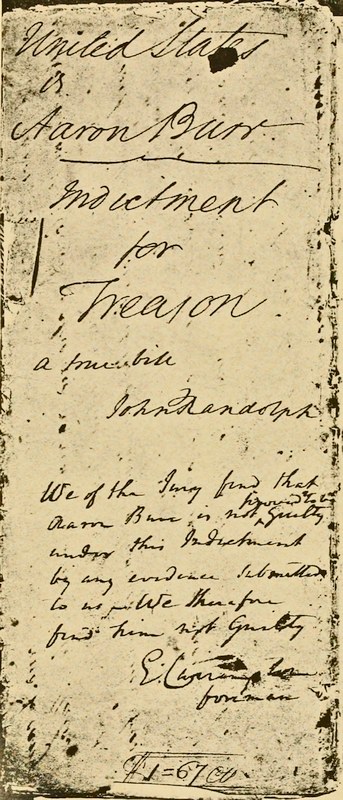 United States
vs
Aaron Burr
Indictment
for
Treason.
a true bill
John Randolph
We of the Jury find that
Aaron Burr is not proved to be Guilty
under this Indictment
by any evidence submitted
to us – We therefore
find him not Guilty
E. Carrington
foreman